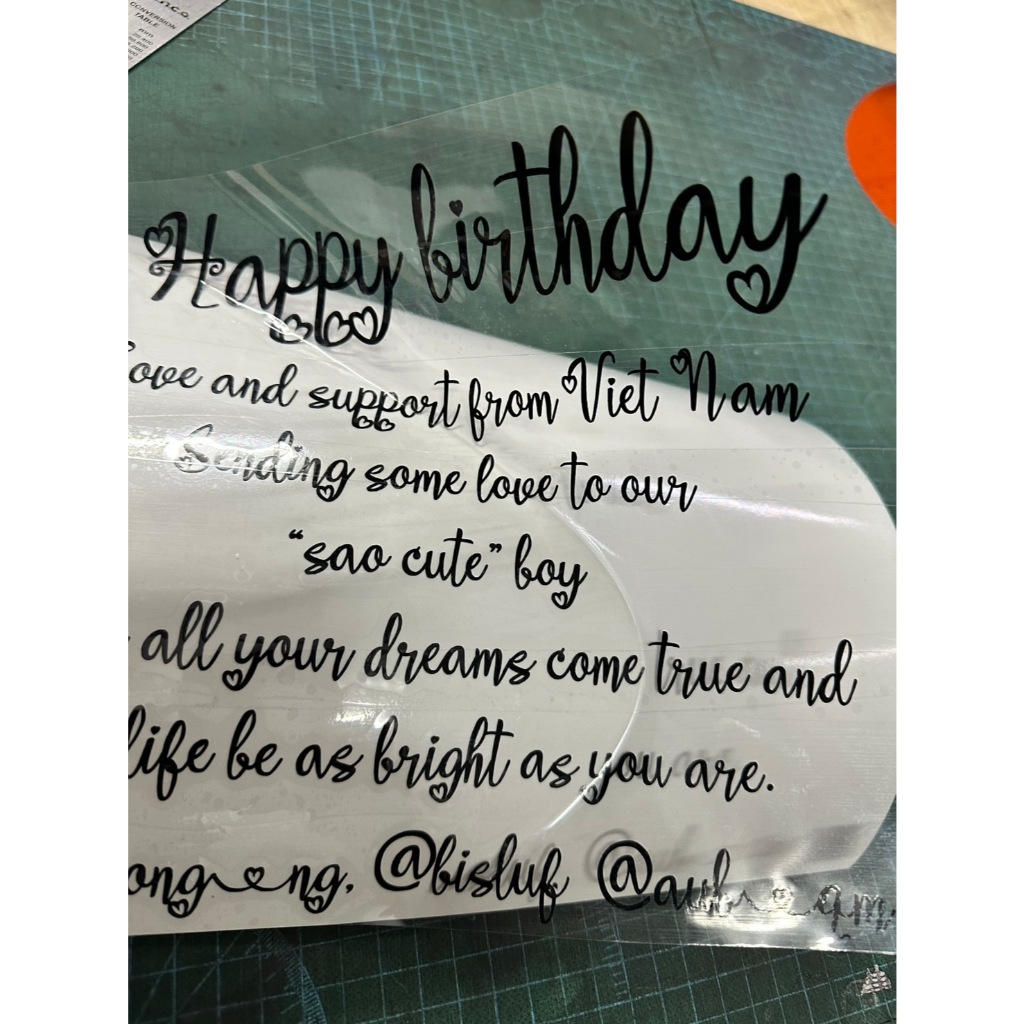 CONVERSION
TABLE
Happy birthday
ove and support from Viet Nam
Sending some love to our
“sao cute” boy
all your dreams come true and
life be as bright as you are.
ong ng. @bisluf